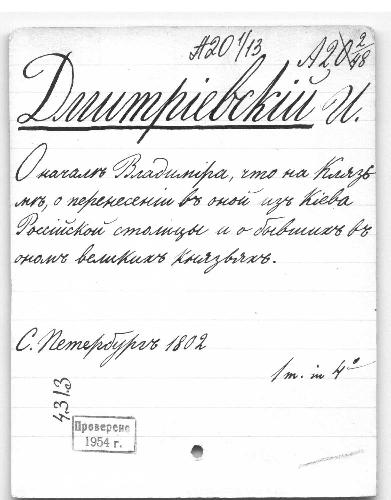 А20 1/13 А20 2/48
Дмитріевскій И.
О началѣ Владиміра, что на Клязь
мѣ, о перенесеніи въ оной изъ Кіева
Россійской столицы и о бывшихъ въ
ономъ великихъ князьяхъ.
С. Петербургъ 1802
1 т. in 4°
4313
Проверено
1954 г.